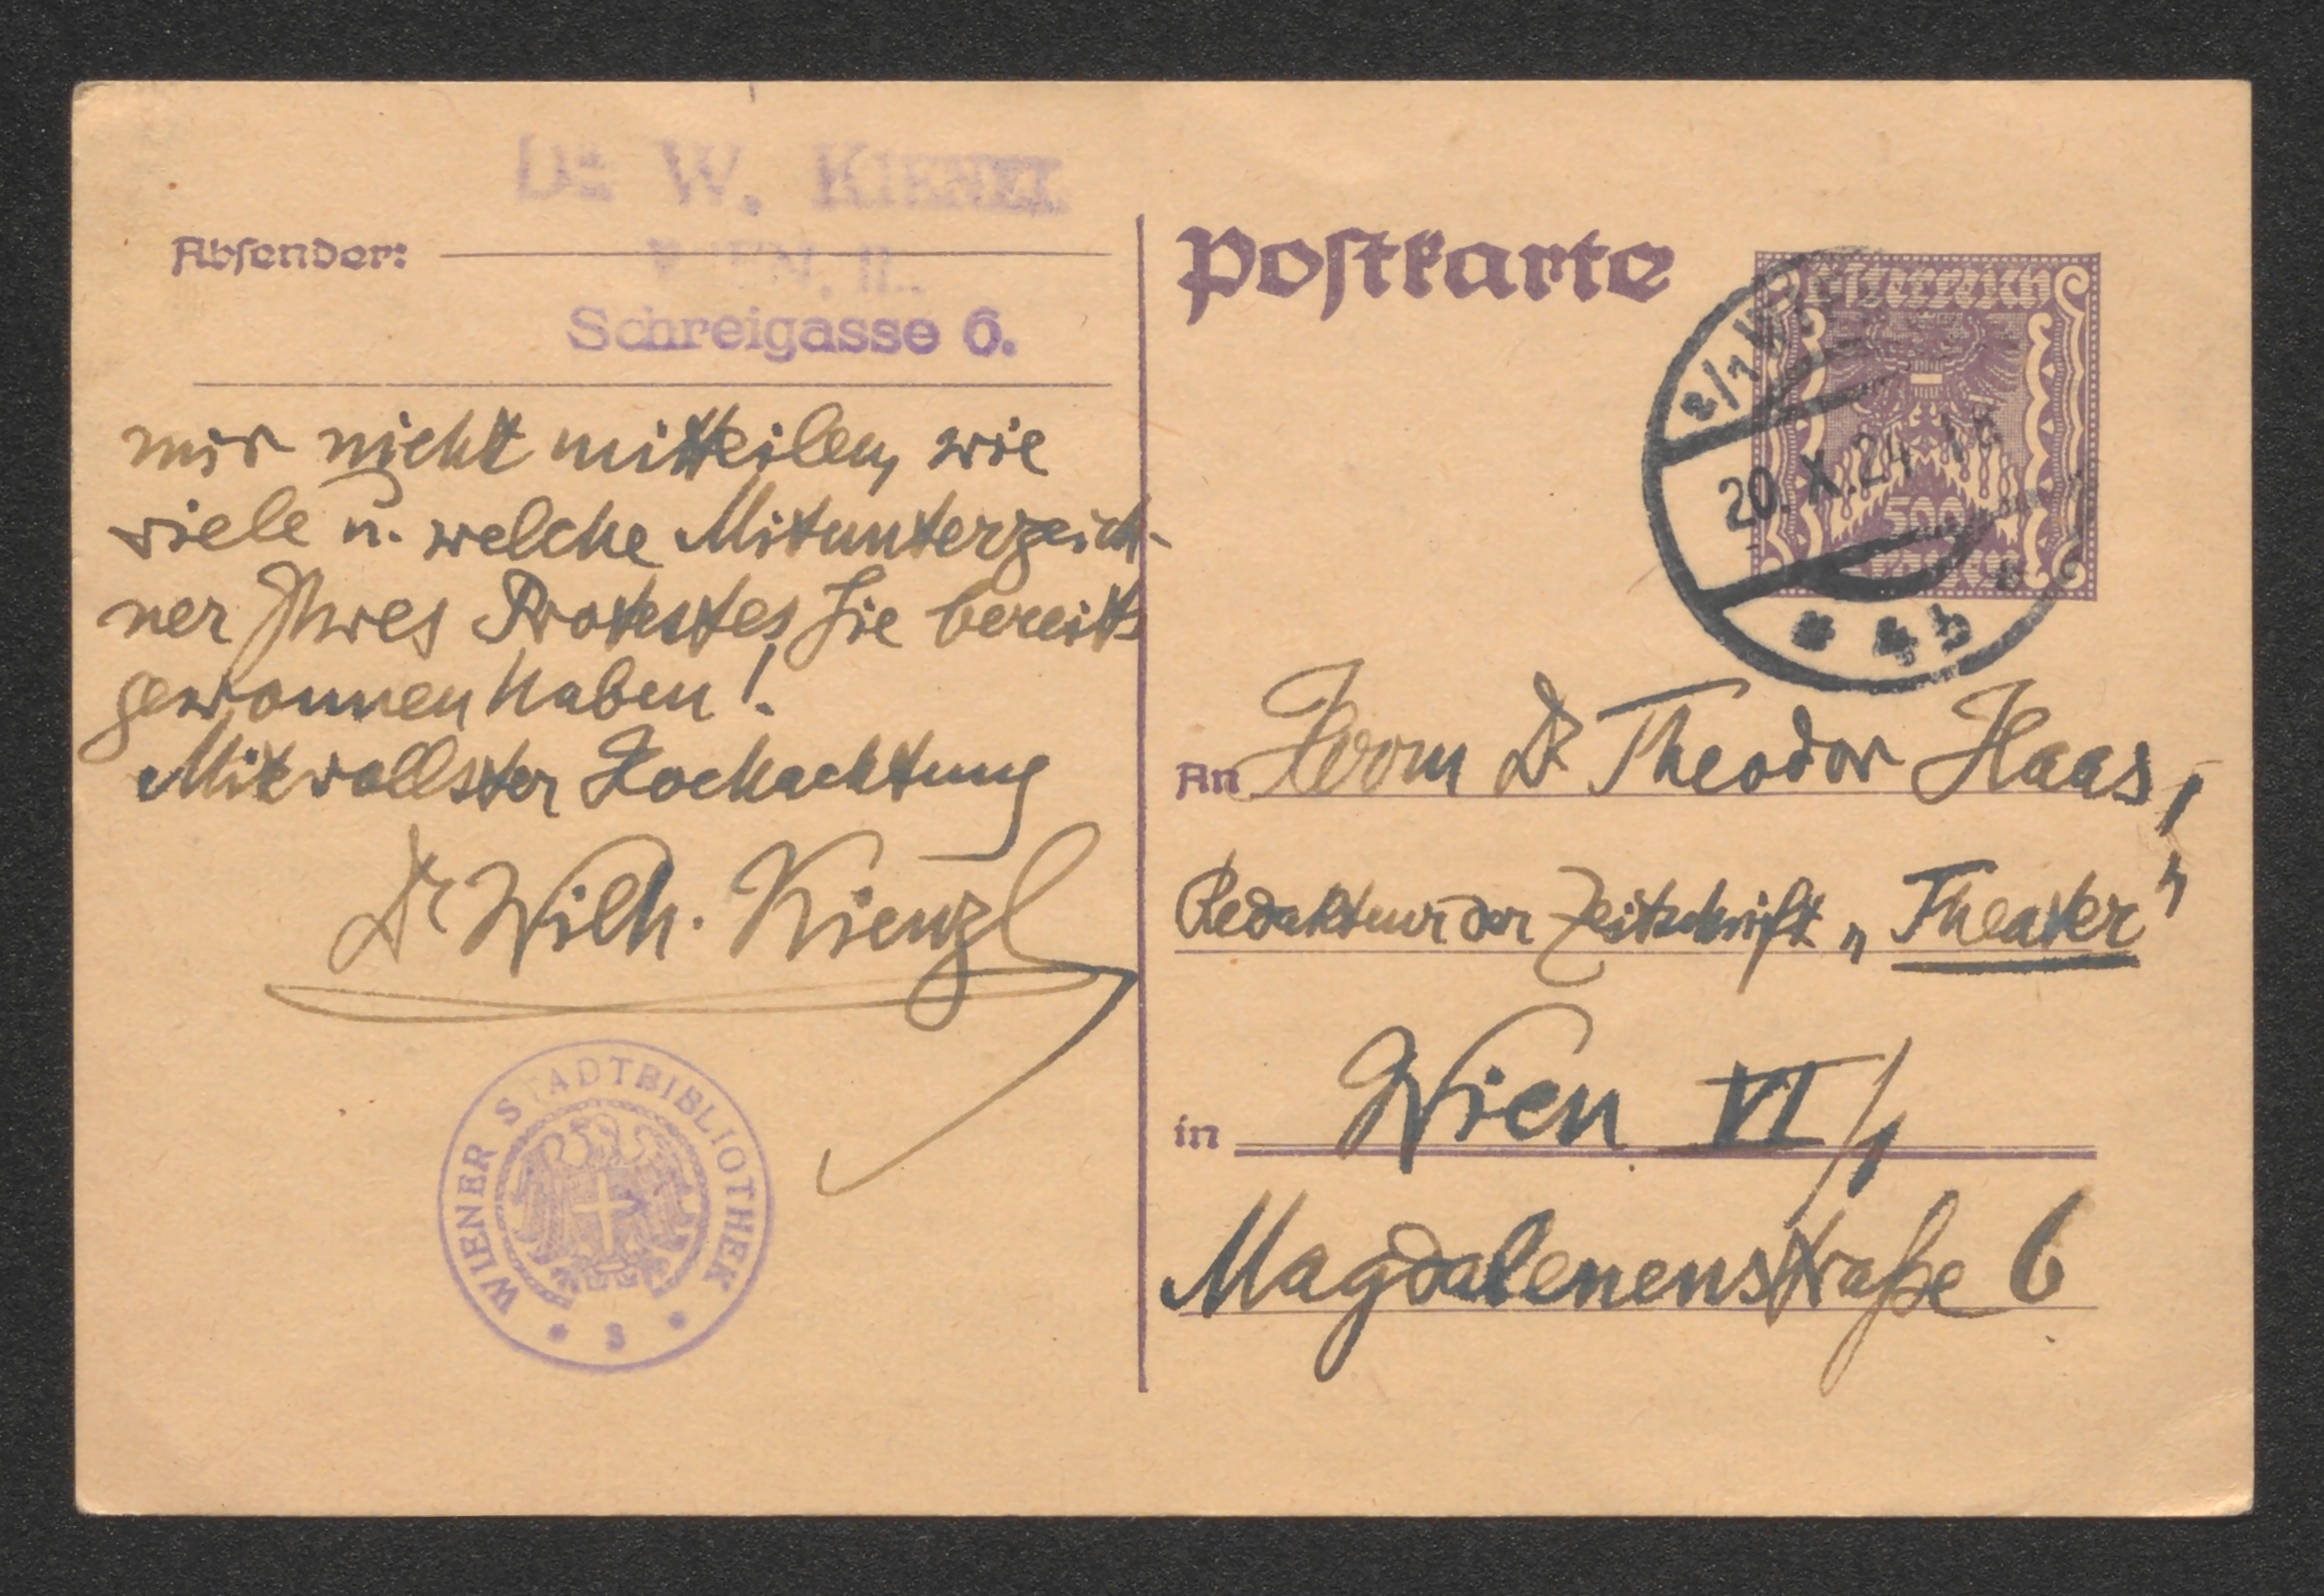 Dr. W. KIENZL
WIEN, II.,
Absender:
Schreigasse 6.
mir nicht mitteilen, wie
viele u. welche Mitunterzeich-
ner Ihres Protestes Sie bereits
gewonnen haben!
Mit vollster Hochachtung
Dr Wilh. Kienzl
WIENER STADTBIBLIOTHEK
* S *
Postkarte
Österreich
500
2/1 WIEN
20.X.24
* 4b *
An Herrn Dr Theodor Haas,
Redakteur der Zeitschrift „Theater"
in Wien VI/1
Magdalenenstraße 6